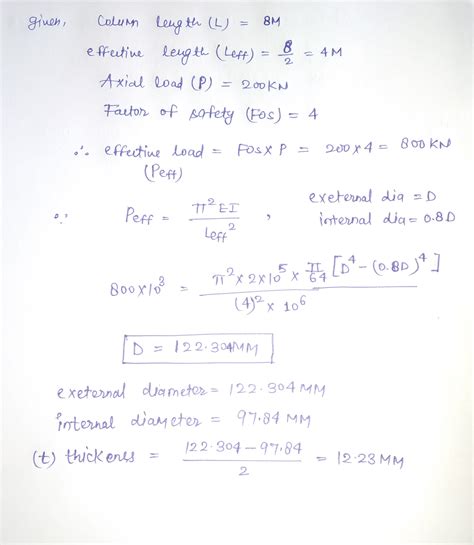 given, Column length (L) = 8M
effective length (Leff) = 8/2 = 4M
Axial load (P) = 200KN
Factor of safety (FOS) = 4
∴ effective load = FOS x P = 200 x 4 = 800 KN
(Peff)
∴ Peff = π² EI / Leff² , exeternal dia = D
internal dia = 0.8D
800 x 10³ = π² x 2 x 10⁵ x π/64 [D⁴ - (0.8D)⁴] / (4)² x 10⁶
D = 122.304MM
exeternal diameter = 122.304 MM
internal diameter = 97.84 MM
(t) thickenss = 122.304 - 97.84 / 2 = 12.23 MM